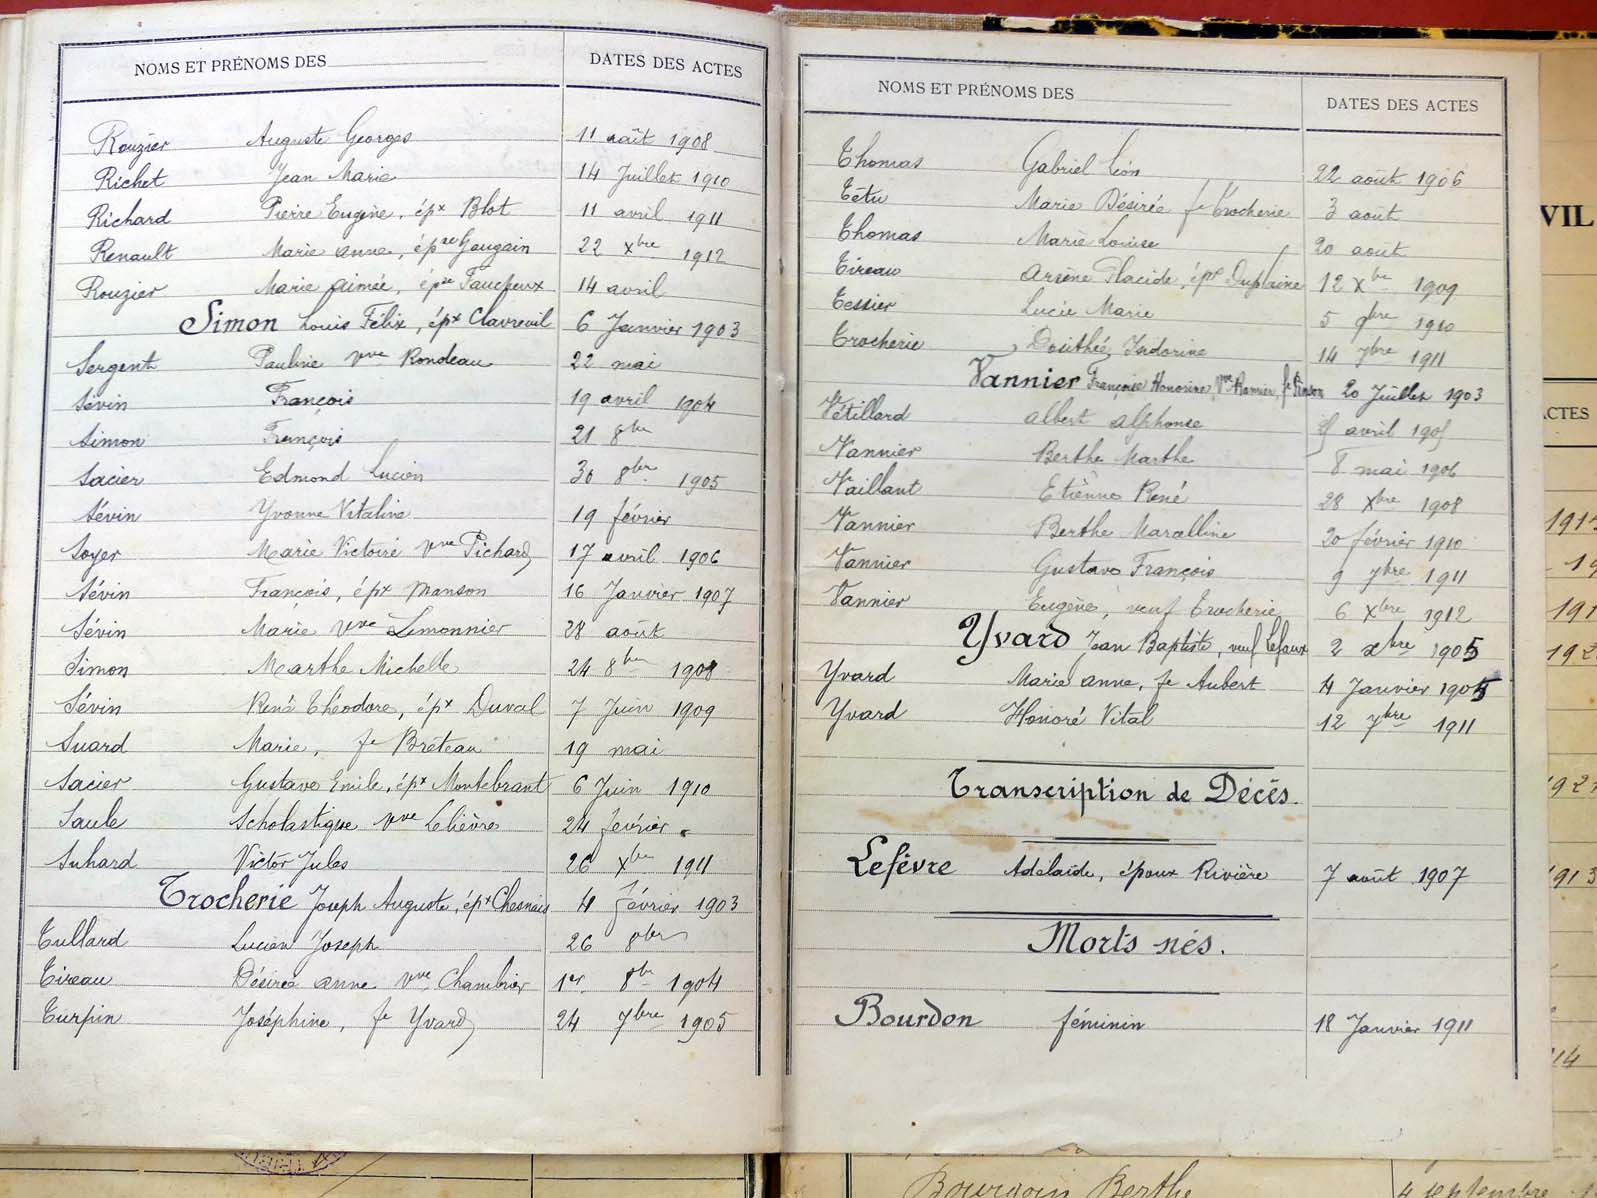 NOMS ET PRÉNOMS DES DATES DES ACTES
Rouzier Auguste Georges 11 août 1908
Richet Jean Marie 14 Juillet 1910
Richard Pierre Eugène, épx Blot 11 avril 1911
Renault Marie anne, épse Gougain 22 Xbre 1912
Rouzier Marie aimée, épse Faucheux 14 avril
Simon Louis Félix, épx Clavreuil 6 Janvier 1903
Sergent Pauline vve Rondeau 22 mai
Sévin François 19 avril 1904
Simon François 21 8bre
Sacier Edmond Lucien 30 8bre 1905
Sévin Yvonne Vitaline 19 février
Soyer Marie Victoire vve Pichard 17 avril 1906
Sévin François, épx Manson 16 Janvier 1907
Sévin Marie vve Limonnier 28 août
Simon Marthe Michelle 24 8bre 1908
Sévin René Théodore, épx Duval 7 Juin 1909
Suard Marie, fe Bréteau 19 mai
Sacier Gustave Emile, épx Montebrant 6 Juin 1910
Saule Scholastique vve Lelièvre 24 février
Suhard Victor Jules 26 Xbre 1911
Trocherie Joseph Auguste, épx Chesnais 4 février 1903
Tullard Lucien Joseph 26 8bre
Tireau Désirée anne vve Chambrier 1er 8bre 1904
Turpin Joséphine, fe Yvard 24 7bre 1905
NOMS ET PRÉNOMS DES DATES DES ACTES
Thomas Gabriel Léon 22 août 1906
Têtu Marie Désirée fe Trocherie 3 août
Thomas Marie Louise 20 août
Tireau Arsène Placide, épx Duplaine 12 Xbre 1909
Tessier Lucie Marie 5 1910
Trocherie Dosithée Isidorine 14 7bre 1911
Vannier Françoise Honorine, Vve fe Pinson 20 Juillet 1903
Vétillard albert alphonse avril 1905
Vannier Berthe Marthe 8 mai 1906
Vaillant Etienne René 28 Xbre 1908
Vannier Berthe Marcelline 20 février 1910
Vannier Gustave François 9 7bre 1911
Vannier Eugène, veuf Trocherie 6 Xbre 1912
Yvard Jean Baptiste, veuf Lefaux 2 xbre 1905
Yvard Marie anne, fe Aubert 4 Janvier 1905
Yvard Honoré Vital 12 7bre 1911
Transcription de Décès.
Lefèvre Adélaïde, époux Rivière 7 août 1907
Morts nés.
Bourdon féminin 18 Janvier 1911
VIL
ACTES
Bourgoin Berthe 4 septembre